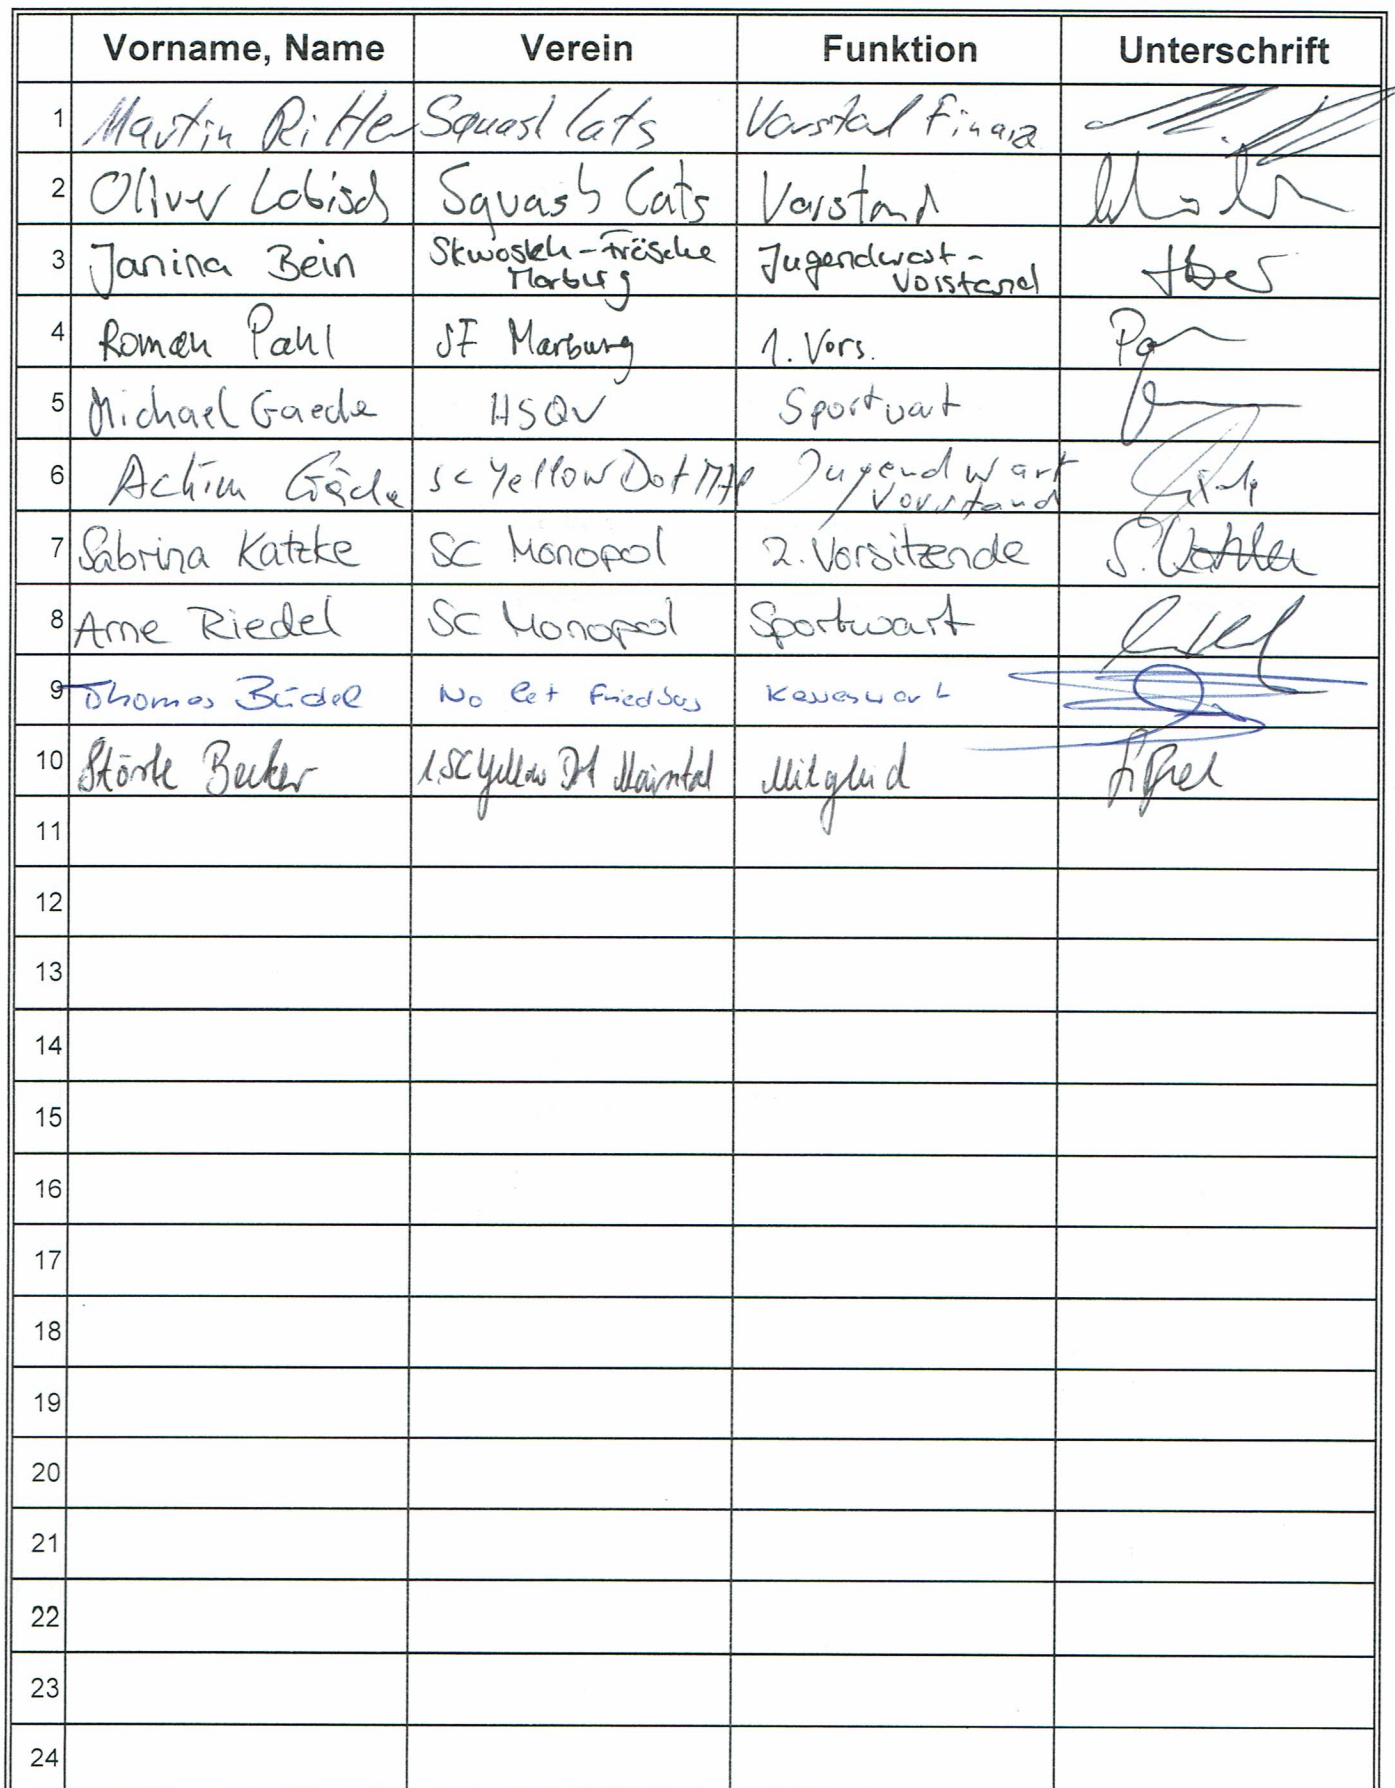 Vorname, Name Verein Funktion Unterschrift
1 Martin Ritter Squash Cats Vorstand Finanz
2 Oliver Lobisch Squash Cats Vorstand
3 Janina Bein Skwosch-Frösche Marburg Jugendwart-Vorstand
4 Roman Pahl SF Marburg 1. Vors.
5 Michael Gaede HSQV Sportwart
6 Achim Gäde SC Yellow Dot Jugendwart Vorstand
7 Sabrina Katzke SC Monopol 2. Vorsitzende S. Katzke
8 Arne Riedel SC Monopol Sportwart
9 Thomas Büdel No Let Friedberg Kassenwart
10 Störte Becker 1. SC Yellow Dot Maintal Mitglied
11
12
13
14
15
16
17
18
19
20
21
22
23
24